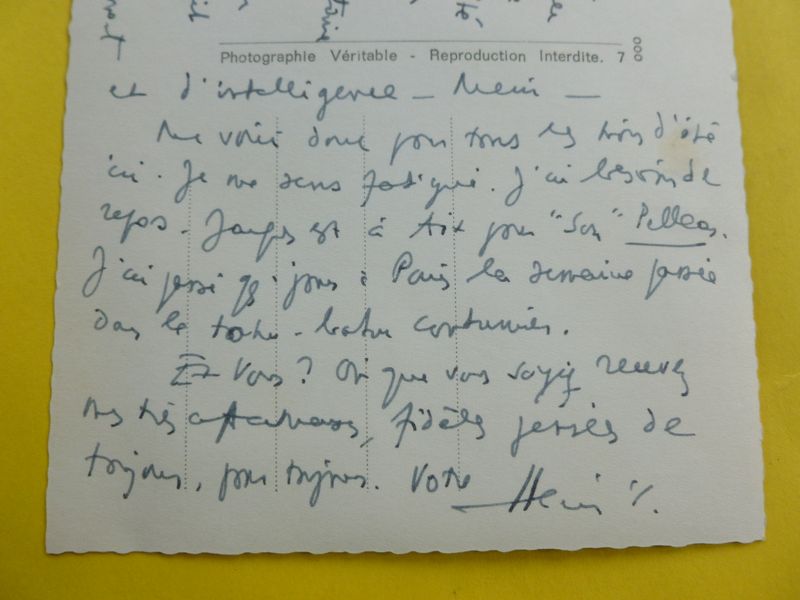 Photographie Véritable - Reproduction Interdite. 7
et d'intelligence — Merci —
Me voici donc pour tous les mois d'été
ici. Je me sens fatigué. J'ai besoin de
repos. Jacques est à Aix pour "Son" Pelleas.
J'ai passé qq jours à Paris la semaine passée
dans le tohu-bohu coutumier.
Et Vous? Où que vous soyez recevez
mes très affectueuses, fidèles pensées de
toujours, pour toujours. Votre Henri